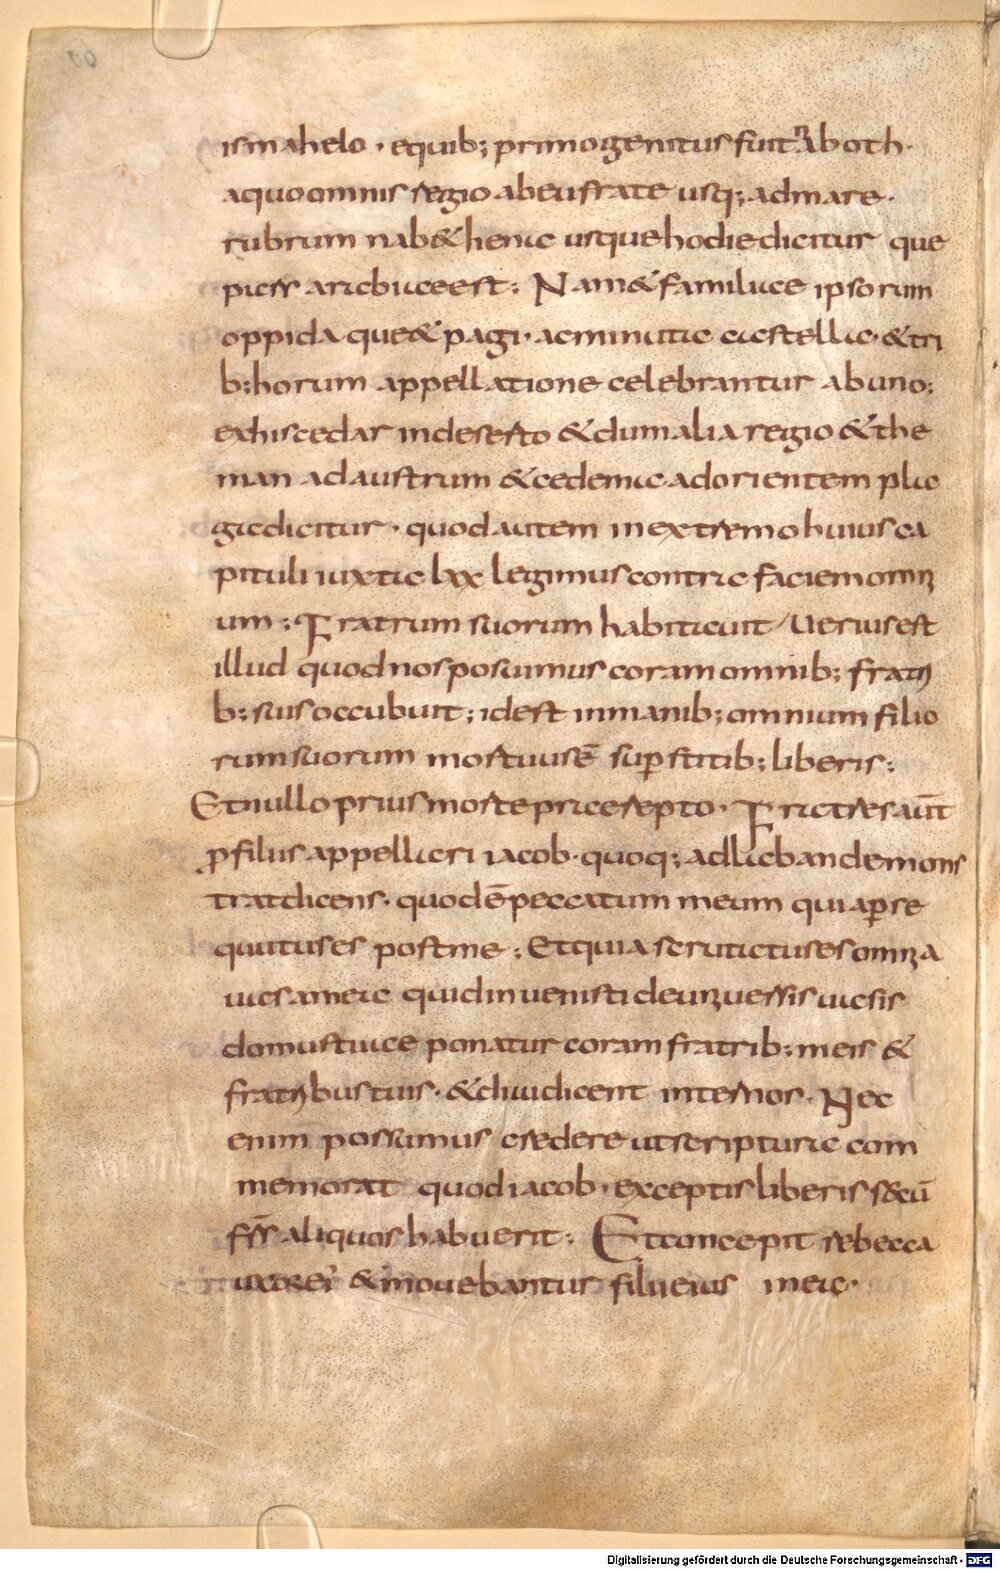 ismahelo · equib; primogenitus fuit naboth ·
aquo omnis regio abeufrate usq; admare ·
rubrum nab&hena usquehodie dicitur que
pars arabiae est : Nam & familiae ipsorum
oppida que & pagi · ac minuta castella · & tri
b; horum appellatione celebrantur abuno;
exhis cedar indeserto & dumalia regio & the
man ad austrum & cedema adorientem pla
ga dicitur · quod autem in extremo huius ca
pituli iuxta lxx legimus contra faciem omni
um : Fratrum suorum habitavit / Uerius est
illud quod nos posuimus coram omnib; fratri
b; suis occubuit ; idest inmanib; omnium filio
rum suorum mortuus ē superstitib; liberis :
Et nullo prius morte praerepto · Fratres aūt
pro filiis appellari iacob · quoq; ad laban demons
trat dicens · quod ē peccatum meum quia perse
quutus es post me : Et quia scrutatus es omnia
uasa mea quid inuenisti deuniuersis uasis
domus tuae ponatur coram fratrib; meis &
fratribus tuis · & diiudicent inter nos · Nec
enim possumus credere ut scriptura com
memorat quod iacob · exceptis liberis secū
frs̄ aliquos habuerit : Et concepit rebecca
uxor ei' & mouebantur filii eius in ea ·
Digitalisierung gefördert durch die Deutsche Forschungsgemeinschaft - DFG